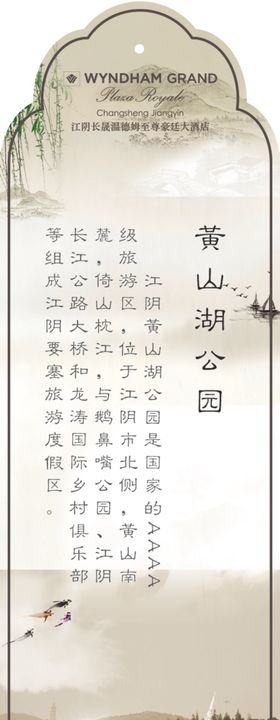 WYNDHAM GRAND
Plaza Royale
Changsheng Jiangyin
江阴长晟温德姆至尊豪廷大酒店
黄山湖公园
江阴黄山湖公园是国家的AAAA
级旅游区，位于江阴市北侧，黄山南
麓，倚山枕江，与鹅鼻嘴公园、江阴
长江公路大桥和龙涛国际乡村俱乐部
等组成江阴要塞旅游度假区。